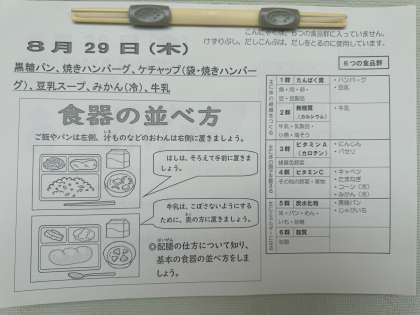 こんにゃくは、6つの食品群に入っていません。
けずりぶし、だしこんぶは、だしをとるのに使用しています。
8月29日(木)
黒糖パン、焼きハンバーグ、ケチャップ(袋・焼きハンバーグ)、豆乳スープ、みかん(冷)、牛乳
食器の並べ方
ごはんやパンは左側、汁ものなどのおわんは右側に置きましょう。
はしは、そろえて手前に置きましょう。
牛乳は、こぼさないようにするために、奥の方に置きましょう。
◎配膳の仕方について知り、基本の食器の並べ方をしましょう。
6つの食品群
1群 たんぱく質
・ハンバーグ
・豆乳
2群 無機質(カルシウム)
牛乳・乳製品・小魚・海そう
・牛乳
3群 ビタミンA(カロテン)
緑黄色野菜
・にんじん
・パセリ
4群 ビタミンC
その他の野菜・果物
・キャベツ
・たまねぎ
・コーン(冷)
・みかん(冷)
5群 炭水化物
米・パン・めん・いも・砂糖
・黒糖パン
・じゃがいも
6群 脂質
油脂